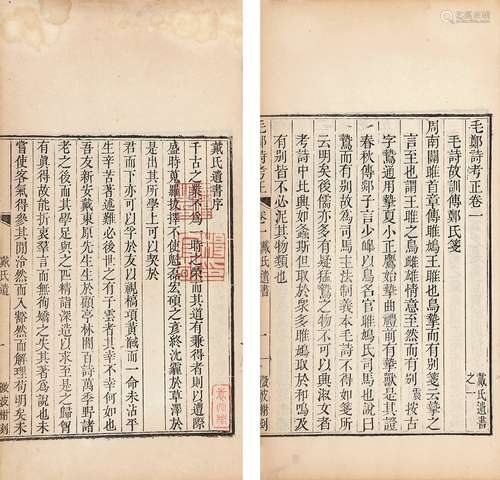 毛鄭詩考正卷一 戴氏遺書之一
毛詩故訓傳鄭氏箋
周南關雎首章傳雎鳩王雎也鳥摯而有別箋云摯之
言至也謂王雎之鳥雌雄情意至然而有別震按古
字鷙通用摯夏小正鷹始摯曲禮前有摯獸是其證
春秋傳郯子言少皞以鳥名官雎鳩氏司馬也說曰
鷙而有別故為司馬主法制義本毛詩不得如箋所
云明矣後儒亦多有疑猛鷙之物不可以興淑女者
考詩中比興如螽斯但取於眾多雎鳩取於和鳴及
有別皆不必泥其物類也
毛鄭詩考正 卷一 戴氏遺書 一 微波榭刻
戴氏遺書序
千古之業不為一時之榮而其道有兼得者則以遭際
盛時蒐羅拔擇不使魁磊宏碩之彥終沈霾於草澤於
是出其所學上可以契於
君而下亦可以孚於友以視槁項黃馘而一命未沾平
生辛苦著述難必後世之有子雲者其幸不幸何如也
吾友新安戴東原先生生於顧亭林閻百詩萬季野諸
老之後而其學足與之匹精詣深造以求至是之歸胷
有眞得故能折衷羣言而無徇矯之失其著其說也未
嘗使客氣得參其間泠然而入豁然而解理苟明矣未
戴氏遺 一 微波榭刻